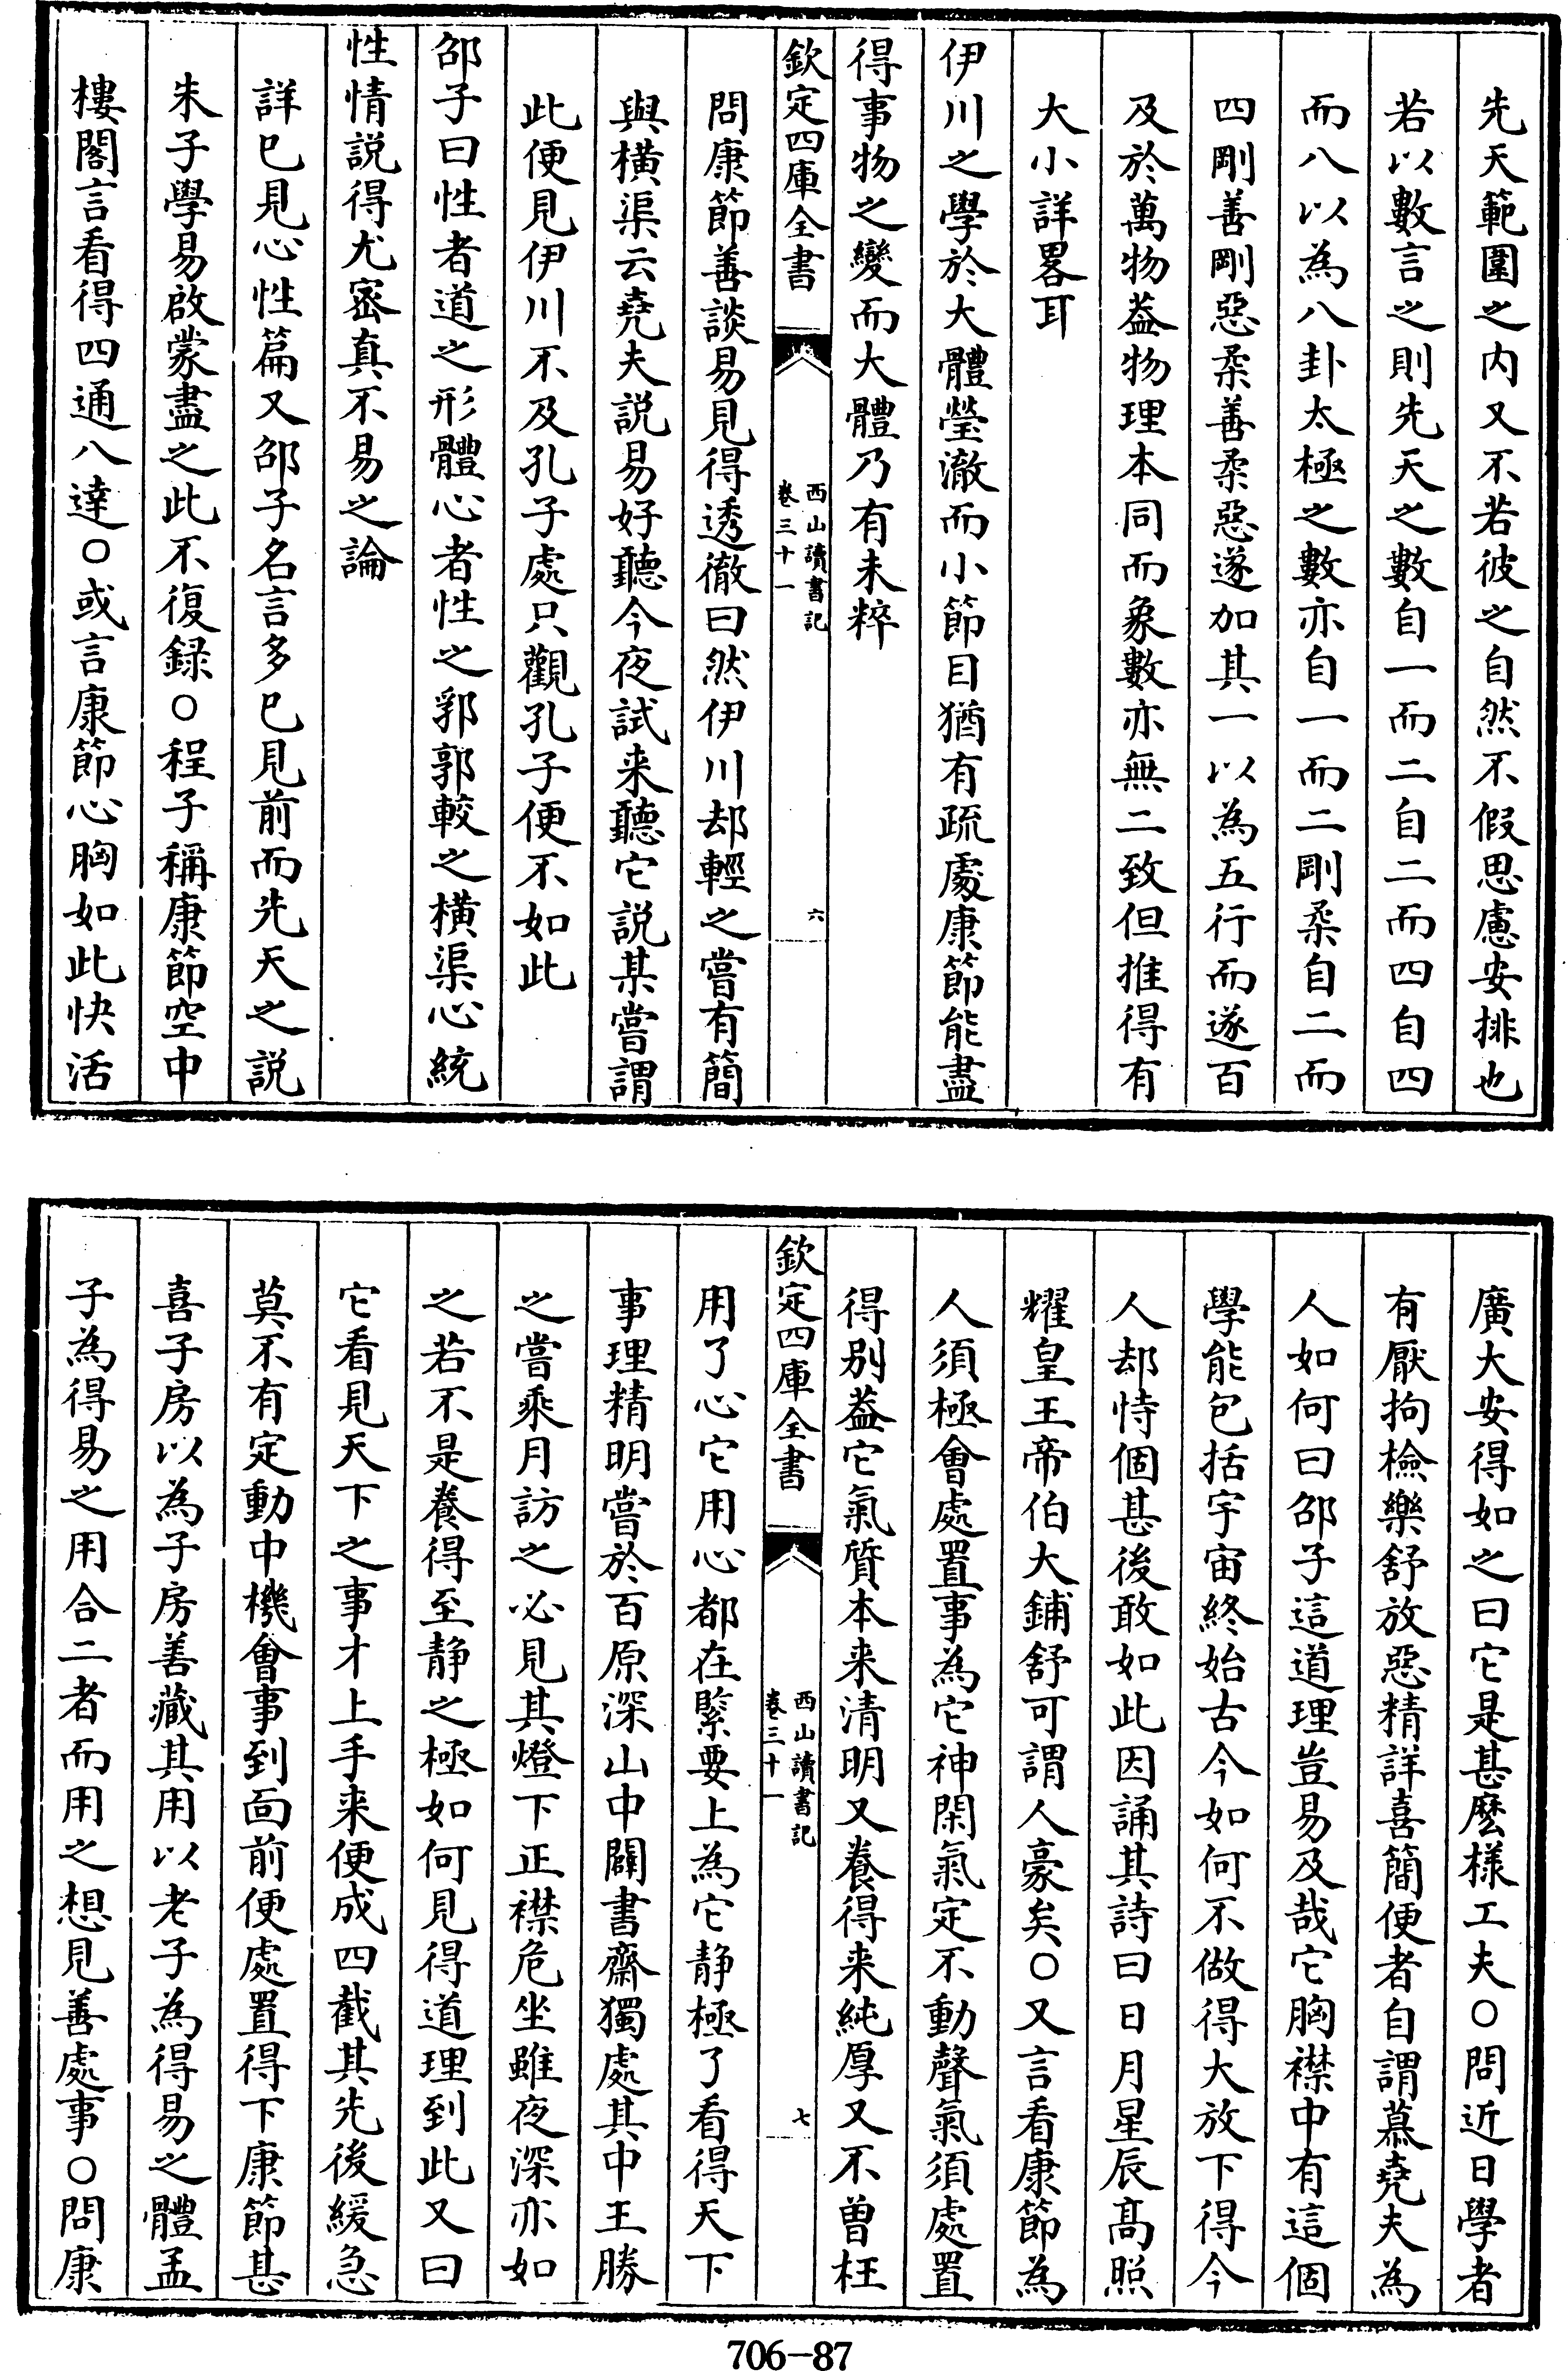 先天範圍之内又不若彼之自然不假思慮安排也
若以數言之則先天之數自一而二自二而四自四
而八以為八卦太極之數亦自一而二剛柔自二而
四剛善剛惡柔善柔惡遂加其一以為五行而遂百
及於萬物葢物理本同而象數亦無二致但推得有
大小詳畧耳
伊川之學於大體瑩澈而小節目猶有疏處康節能盡
得事物之變而大體乃有未粹
欽定四庫全書
西山讀書記
卷三十一
六
問康節善談易見得透徹曰然伊川却輕之嘗有簡
與横渠云堯夫説易好聽今夜試来聽它説某嘗謂
此便見伊川不及孔子處只觀孔子便不如此
邵子曰性者道之形體心者性之郛郭較之横渠心統
性情説得尤宻真不易之論
詳已見心性篇又邵子名言多已見前而先天之説
朱子學易啟蒙盡之此不復録○程子稱康節空中
樓閣言看得四通八達○或言康節心胸如此快活
廣大安得如之曰它是甚麽様工夫○問近日學者
有厭拘檢樂舒放惡精詳喜簡便者自謂慕堯夫為
人如何曰邵子這道理豈易及哉它胸襟中有這個
學能包括宇宙終始古今如何不做得大放下得今
人却恃個甚後敢如此因誦其詩曰日月星辰髙照
耀皇王帝伯大鋪舒可謂人豪矣○又言看康節為
人須極會處置事為它神閑氣定不動聲氣須處置
得别葢它氣質本来清明又養得来純厚又不曽枉
欽定四庫全書
西山讀書記
卷三十一
七
用了心它用心都在緊要上為它静極了看得天下
事理精明嘗於百原深山中闢書齋獨處其中王勝
之嘗乘月訪之必見其燈下正襟危坐雖夜深亦如
之若不是養得至静之極如何見得道理到此又曰
它看見天下之事才上手来便成四截其先後緩急
莫不有定動中機會事到面前便處置得下康節甚
喜子房以為子房善藏其用以老子為得易之體孟
子為得易之用合二者而用之想見善處事○問康
706-87